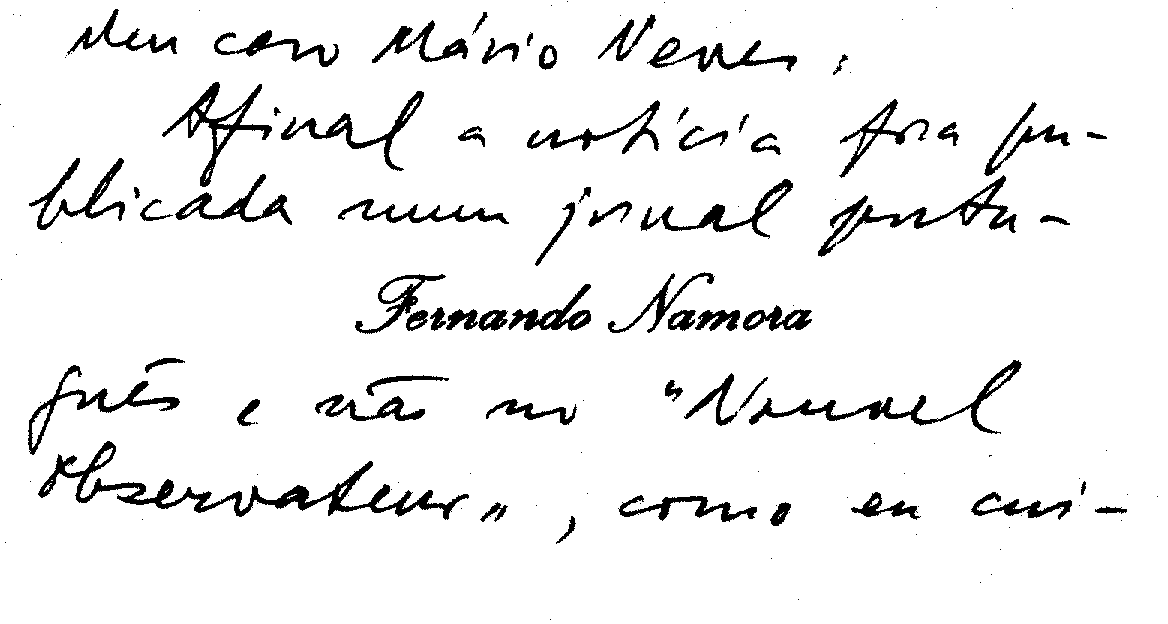 Meu caro Mário Neves,
Afinal a notícia fora pu-
blicada num jornal portu-
Fernando Namora
guês e não no "Nouvel
Observateur", como eu cui-